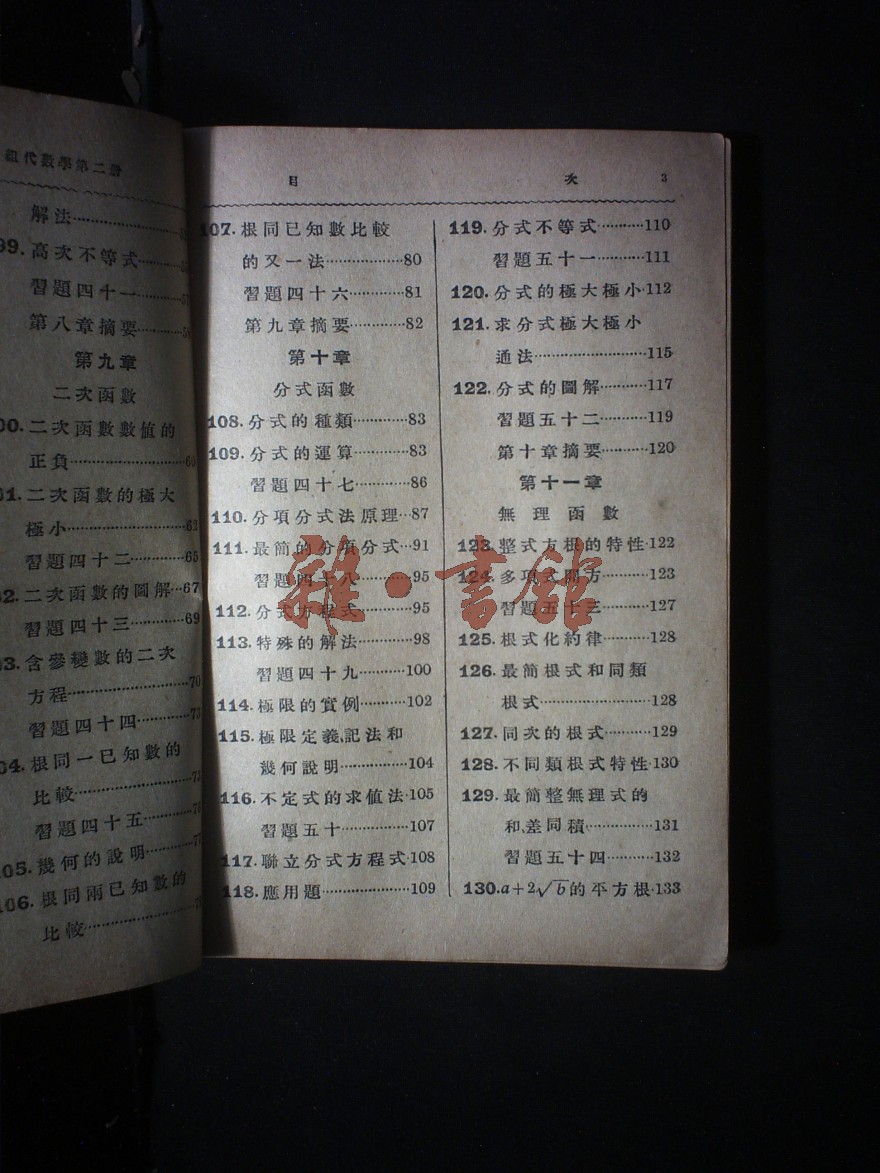 組代數學第二册
解法
99.高次不等式
習題四十一
第八章摘要
第九章
二次函數
00.二次函數數值的
正負
01.二次函數的極大
極小
習題四十二 65
02.二次函數的圖解 67
習題四十三 69
03.含參變數的二次
方程 70
習題四十四
04.根同一已知數的
比較
習題四十五
05.幾何的說明
06.根同兩已知數的
比較
目 次 3
107.根同已知數比較
的又一法 80
習題四十六 81
第九章摘要 82
第十章
分式函數
108.分式的種類 83
109.分式的運算 83
習題四十七 86
110.分項分式法原理 87
111.最簡的分項分式 91
習題四十八 95
112.分式方程式 95
113.特殊的解法 98
習題四十九 100
114.極限的實例 102
115.極限定義、記法和
幾何說明 104
116.不定式的求值法 105
習題五十 107
117.聯立分式方程式 108
118.應用題 109
119.分式不等式 110
習題五十一 111
120.分式的極大極小 112
121.求分式極大極小
通法 115
122.分式的圖解 117
習題五十二 119
第十章摘要 120
第十一章
無理函數
123.整式方根的特性 122
124.多項式開方 123
習題五十三 127
125.根式化約律 128
126.最簡根式和同類
根式 128
127.同次的根式 129
128.不同類根式特性 130
129.最簡整無理式的
和、差同積 131
習題五十四 132
130.a+2√b的平方根 133
雜·書館